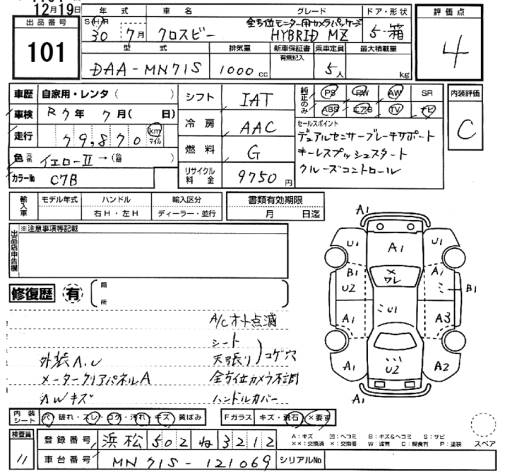 12月19日
出品番号
101
年式
車名
グレード
ドア・形状
評価点
S(H)
30年 7月
クロスビー
全方位モニター用カメラパッケージ
HYBRID MZ
5・箱
4
型式
排気量
新車保証書
有無記入
乗車定員
最大積載量
DAA-MN71S
1000cc
5人
kg
車歴
自家用・レンタ( )
車検
R7年 7月( 日)
走行
79,870
km
マイル
色
イエローII→( )
カラー№
C7B
シフト
IAT
冷房
AAC
燃料
G
リサイクル料金
9750円
純正のみ
PS PW AW SR
ABS エアB TV ナビ
セールスポイント
デュアルセンサーブレーキサポート
キーレスプッシュスタート
クルーズコントロール
内装評価
C
輸入車
モデル年式
ハンドル
右H・左H
輸入区分
ディーラー・並行
書類有効期限
月 日迄
出品店申告欄
※注意事項等記載
修復歴
有
箇所
A/Cオト点滅
シート
天張り
コゲ穴
外装A.U
メータークリアパネルA
全方位カメラ不調
AWキズ
ハンドルカバー
A1
U1
A1
A1
B1
U2
×
ワレ
B1
U1
A1
A3
A2
U2
A2
A1
内装シート
穴 破れ・スレ コゲ・汚れ キズ 黄ばみ
Fガラス
キズ・飛石 ×要す
検査員
11
登録番号
浜松 502 ね 3212
車台番号
MN71S-121069
シリアルNo
A:キズ
U:凹ミ
B:キズ&ヘコミ
S:サビ
スペア